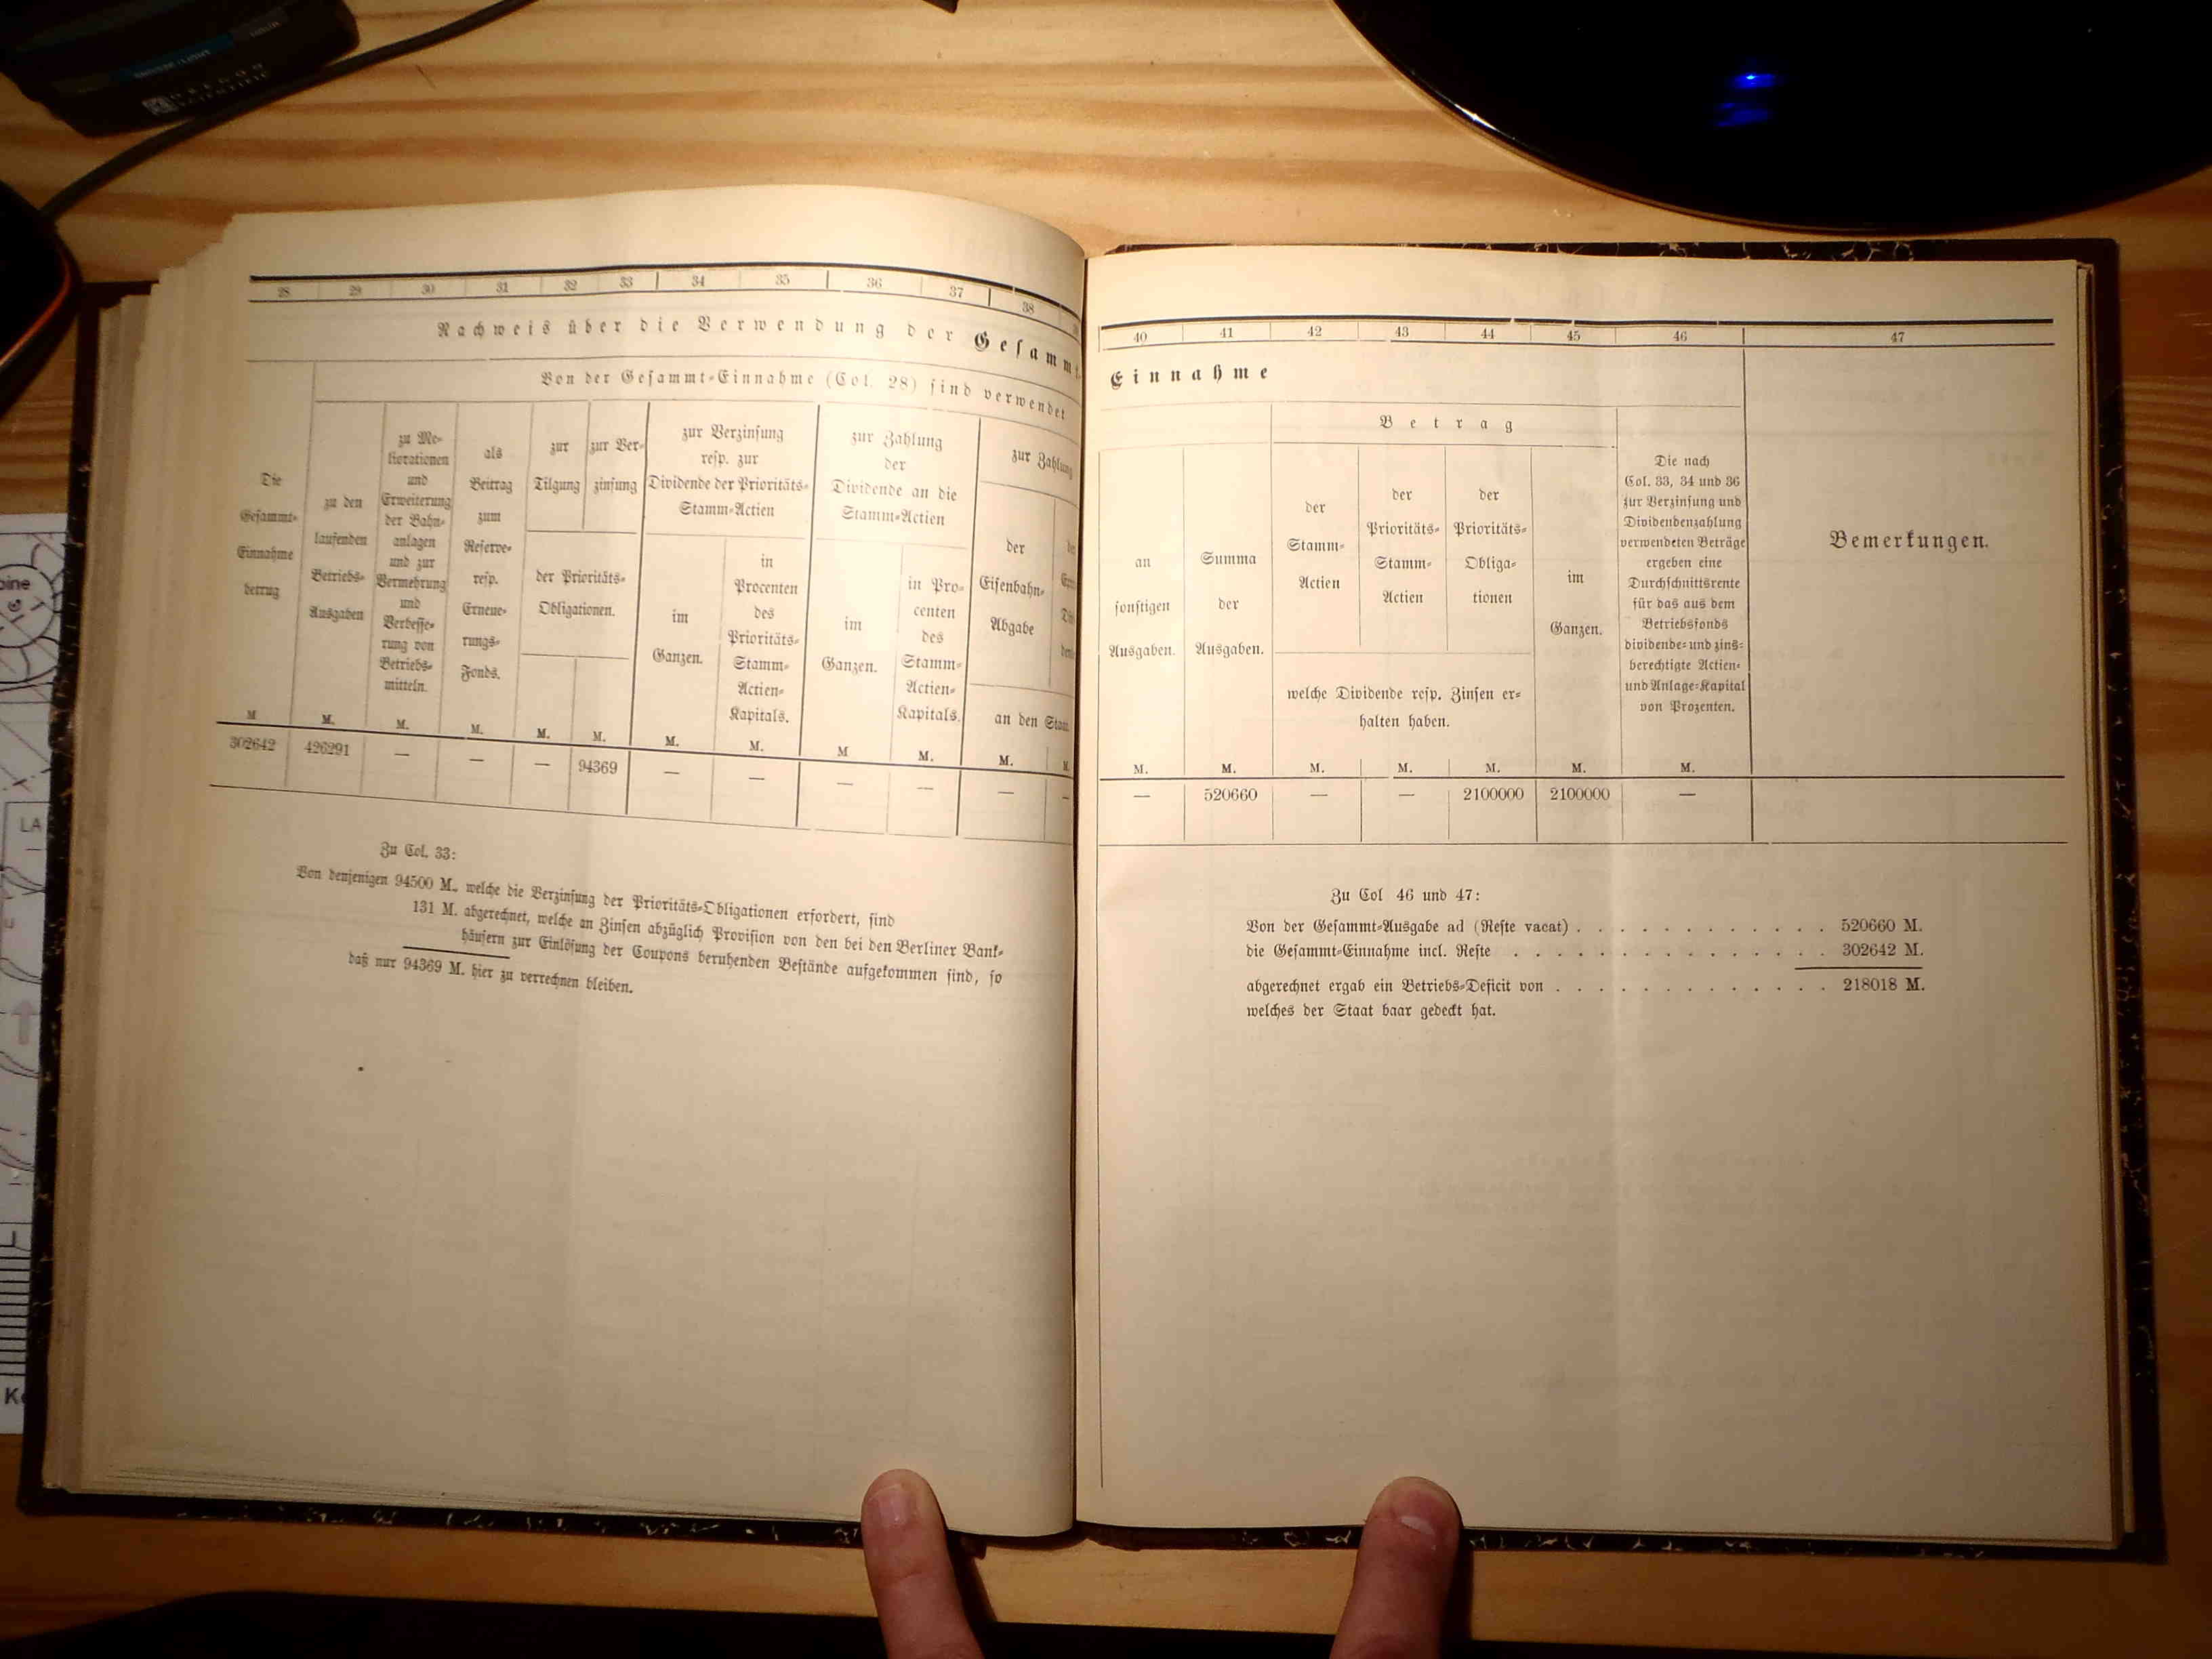 OREGON
SCIENTIFIC
bine
LA
28 29 30 31 32 33 34 35 36 37 38
Nachweis über die Verwendung der Gesammt-
Von der Gesammt-Einnahme (Col. 28) sind verwendet
Die
Gesammt-
Einnahme
betrug
M
zu den
laufenden
Betriebs-
Ausgaben
M.
zu Me-
liorationen
und
Erweiterung
der Bahn-
anlagen
und zur
Vermehrung
und
Verbesse-
rung von
Betriebs-
mitteln.
M.
als
Beitrag
zum
Reserve-
resp.
Erneue-
rungs-
Fonds.
M.
zur
Tilgung
zur Ver-
zinsung
der Prioritäts-
Obligationen.
M. M.
zur Verzinsung
resp. zur
Dividende der Prioritäts-
Stamm-Actien
im
Ganzen.
M.
in
Procenten
des
Prioritäts-
Stamm-
Actien-
Kapitals.
M.
zur Zahlung
der
Dividende an die
Stamm-Actien
im
Ganzen.
M
in Pro-
centen
des
Stamm-
Actien-
Kapitals.
M.
zur Zahlung
der
Eisenbahn-
Abgabe
an den Staat
M.
302642 426291 — — — 94369 — — — — — —
Zu Col. 33:
Von denjenigen 94500 M., welche die Verzinsung der Prioritäts-Obligationen erfordert, sind
131 M. abgerechnet, welche an Zinsen abzüglich Provision von den bei den Berliner Bank-
häusern zur Einlösung der Coupons beruhenden Bestände aufgekommen sind, so
daß nur 94369 M. hier zu verrechnen bleiben.
40 41 42 43 44 45 46 47
Einnahme
Betrag
an
sonstigen
Ausgaben.
M.
Summa
der
Ausgaben.
M.
der
Stamm-
Actien
der
Prioritäts-
Stamm-
Actien
der
Prioritäts-
Obliga-
tionen
welche Dividende resp. Zinsen er-
halten haben.
M. M. M.
im
Ganzen.
M.
Die nach
Col. 33, 34 und 36
zur Verzinsung und
Dividendenzahlung
verwendeten Beträge
ergeben eine
Durchschnittsrente
für das aus dem
Betriebsfonds
dividende- und zins-
berechtigte Actien-
und Anlage-Kapital
von Prozenten.
M.
Bemerkungen.
— 520660 — — 2100000 2100000 —
Zu Col 46 und 47:
Von der Gesammt-Ausgabe ad (Reste vacat) . . . . . . . . . . . . 520660 M.
die Gesammt-Einnahme incl. Reste . . . . . . . . . . . . . . . 302642 M.
abgerechnet ergab ein Betriebs-Deficit von . . . . . . . . . . . . . 218018 M.
welches der Staat baar gedeckt hat.